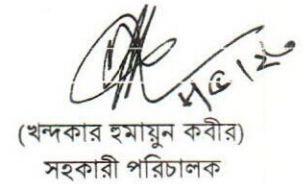 (খন্দকার হুমায়ুন কবীর)
সহকারী পরিচালক